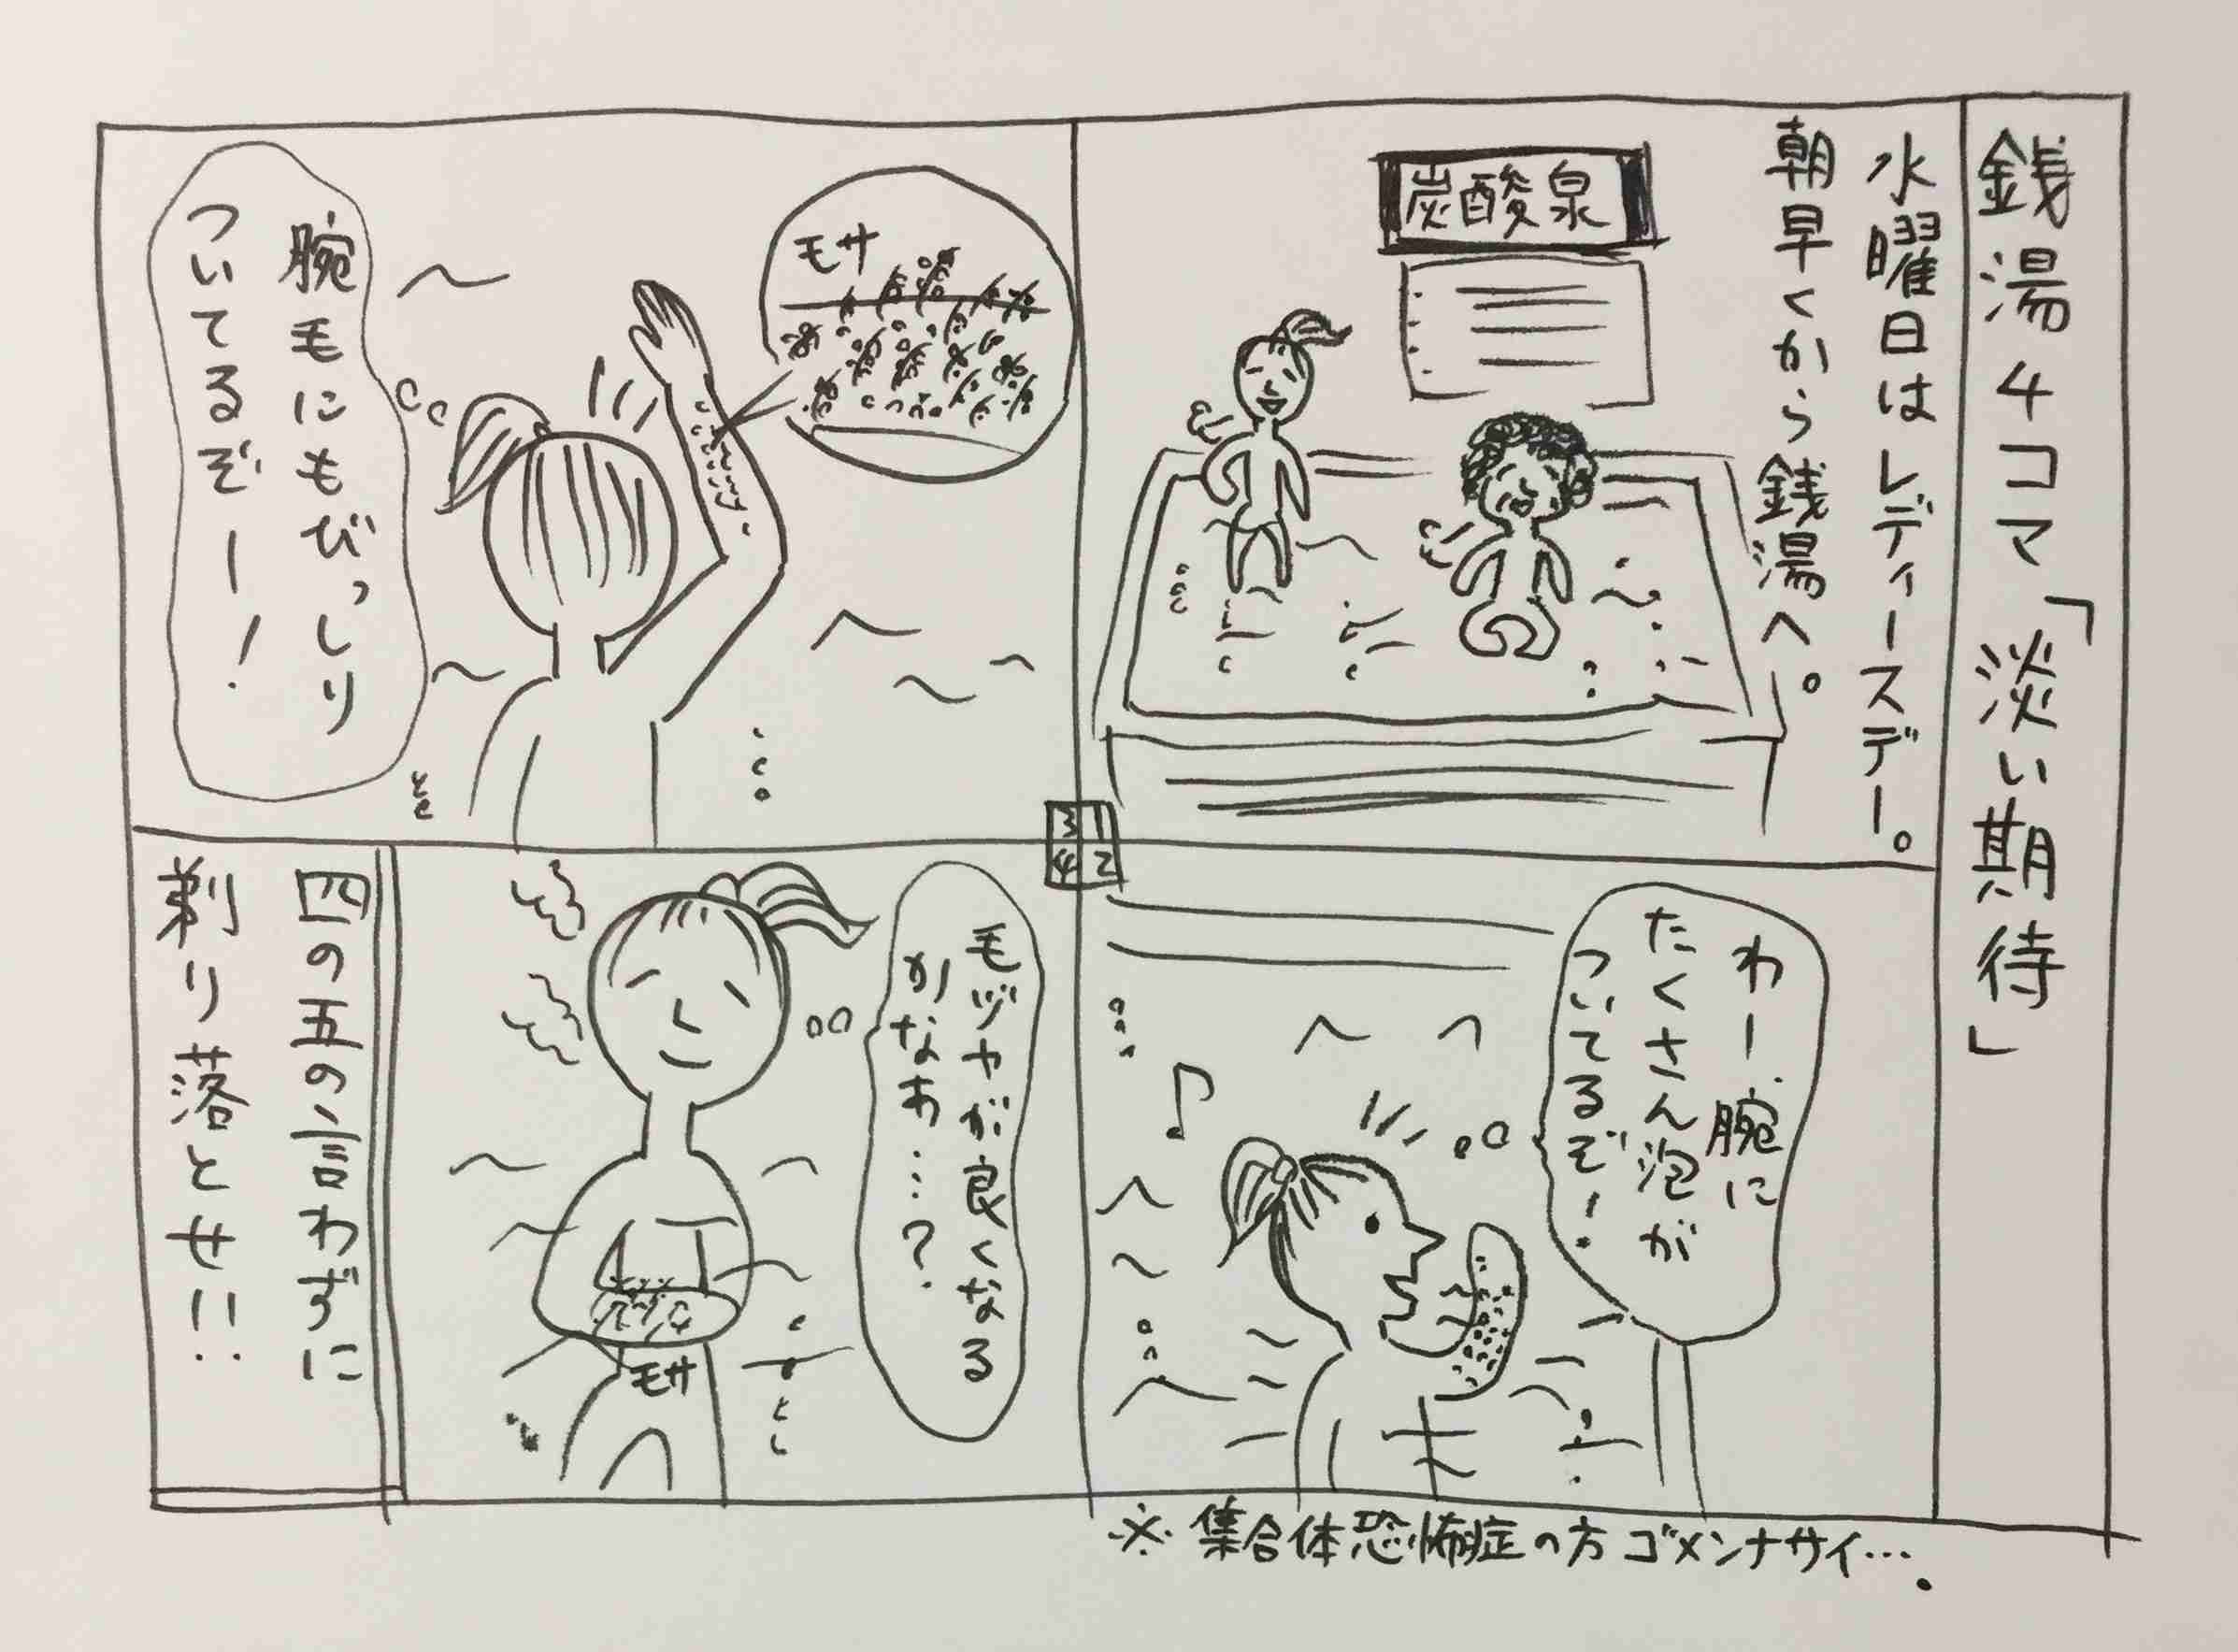 銭湯4コマ「淡い期待」
水曜日はレディースデー。
朝早くから銭湯へ。
炭酸泉
1
2
3
4
わー腕に
たくさん泡が
ついてるぞ!
モサ
腕毛にもびっしり
ついてるぞー!
毛ヅヤが良くなる
かなあ…?
モサ
四の五の言わずに
剃り落とせ!!
※集合体恐怖症の方ゴメンナサイ…。